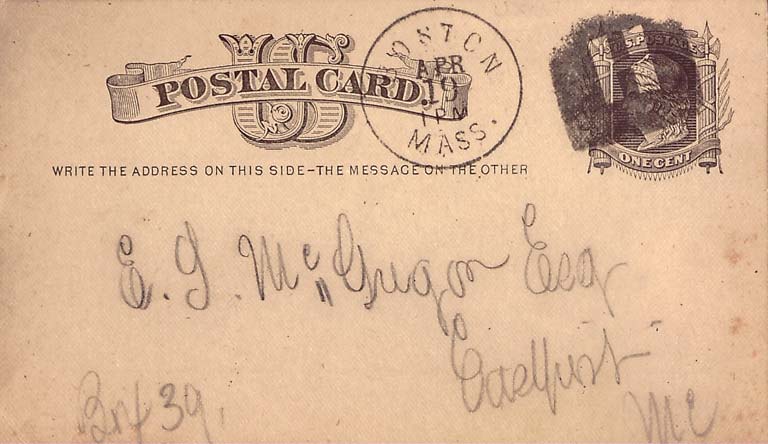 US
POSTAL CARD.
BOSTON
APR
19
1 PM
MASS.
U.S. POSTAGE
ONE CENT
WRITE THE ADDRESS ON THIS SIDE–THE MESSAGE ON THE OTHER
E. G. McGregor Esq
Eastport
Box 39. Me